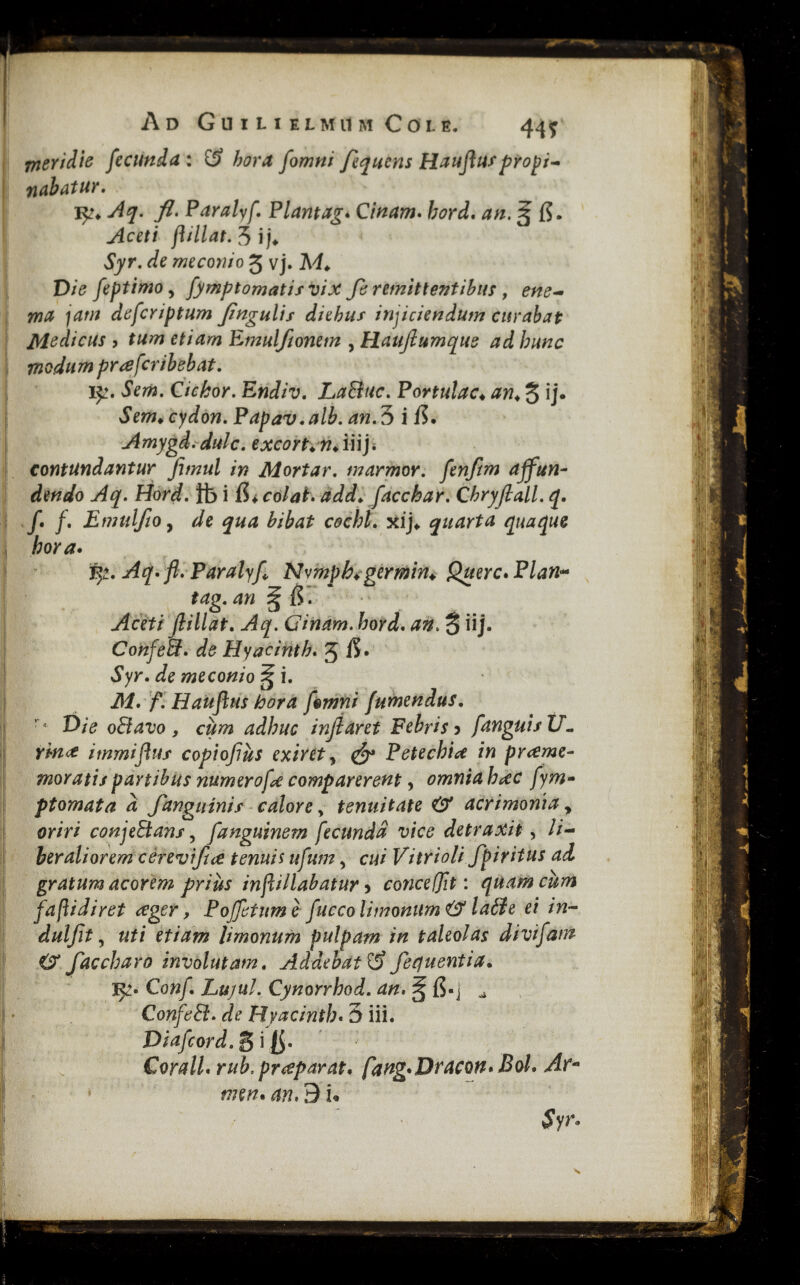 Ad Guilielmum Cole. 445
meridie ſecunda: & hora ſomni ſequens Hauſtus propi-
nabatur.
℞. Aq. fl. Paralyſ. Plantag. Cinam. hord. an. ℥ ß.
Aceti ſtillat. ʒ ij.
Syr. de meconio ʒ vj. M.
Die ſeptimo, ſymptomatis vix ſe remittentibus, ene-
ma jam deſcriptum ſingulis diebus injiciendum curabat
Medicus, tum etiam Emulſionem, Hauſtumque ad hunc
modum præſcribebat.
℞. Sem. Cichor. Endiv. Lactuc. Portulac. an. ʒ ij.
Sem. cydon. Papav. alb. an. ʒ i ß.
Amygd. dulc. excort. n. iiij.
contundantur ſimul in Mortar. marmor. ſenſim affun-
dendo Aq. Hord. ℔ i ß. colat. add. ſacchar. Chryſtall. q.
ſ. f. Emulſio, de qua bibat cochl. xij. quarta quaque
hora.
℞. Aq. fl. Paralyſ. Nymph. germin. Querc. Plan-
tag. an ℥ ß.
Aceti ſtillat. Aq. Cinam. hord. an. ʒ iij.
Confect. de Hyacinth. ʒ ß.
Syr. de meconio ℥ i.
M. f. Hauſtus hora ſomni ſumendus.
Die octavo, cùm adhuc inſtaret Febris, ſanguis U-
rinæ immiſtus copioſiùs exiret, & Petechiæ in præme-
moratis partibus numeroſæ comparerent, omnia hæc ſym-
ptomata à ſanguinis calore, tenuitate & acrimonia,
oriri conjectans, ſanguinem ſecundâ vice detraxit, li-
beraliorem cereviſiæ tenuis uſum, cui Vitrioli ſpiritus ad
gratum acorem priùs inſtillabatur, conceſſit: quam cùm
faſtidiret æger, Poſſetum è ſucco limonum & lacte ei in-
dulſit, uti etiam limonum pulpam in taleolas diviſam
& ſaccharo involutam. Addebat & ſequentia.
℞. Conſ. Lujul. Cynorrhod. an. ℥ ß.
Confect. de Hyacinth. ʒ iii.
Diaſcord. ʒ i ß.
Corall. rub. præparat. ſang. Dracon. Bol. Ar-
men. an. ℈ i.
Syr.